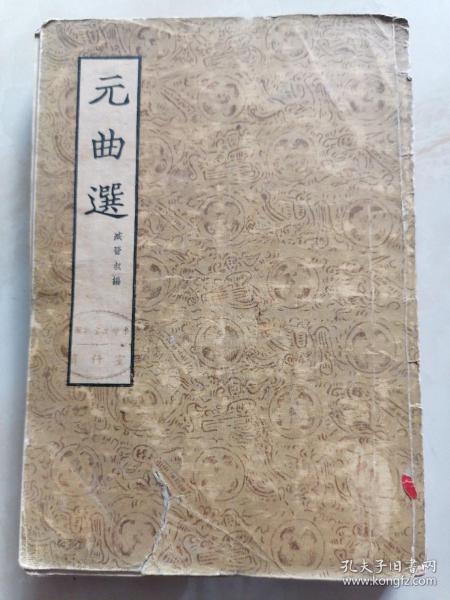 元曲選
臧晉叔編
孔夫子旧书网
www.kongfz.com